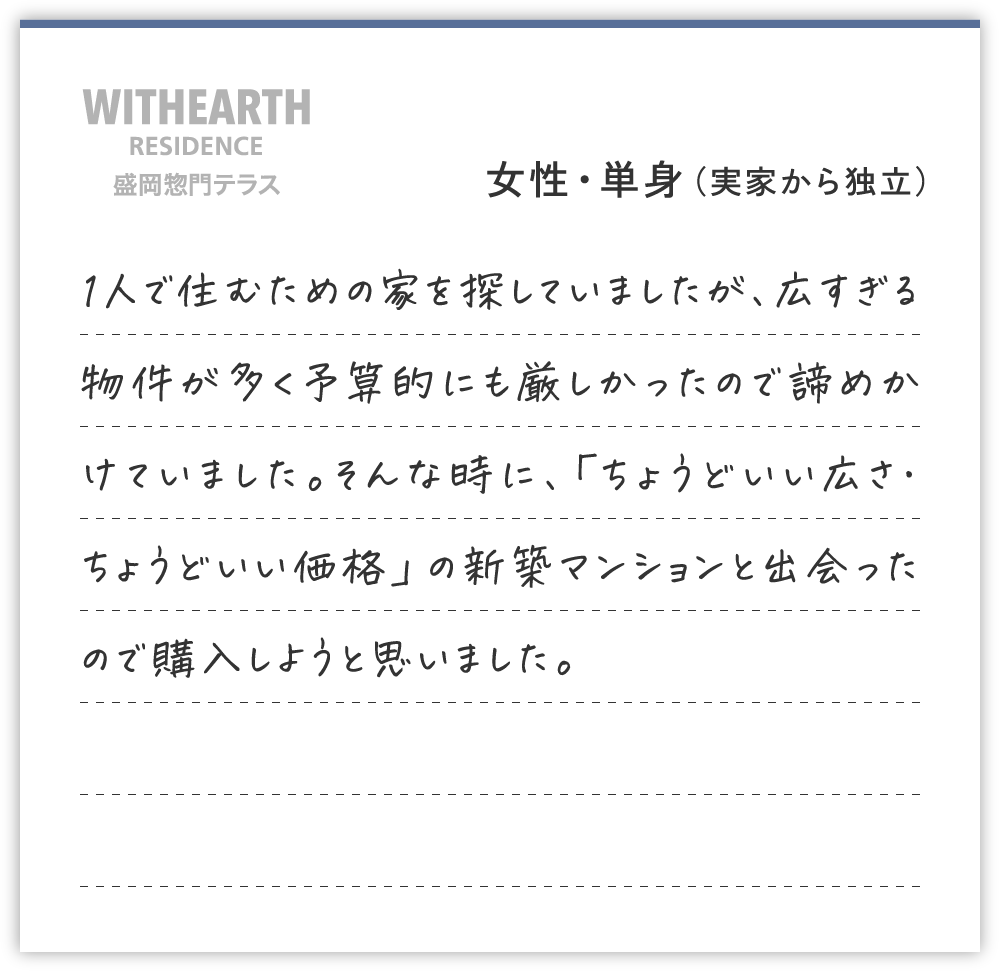 WITHEARTH
RESIDENCE
盛岡惣門テラス
女性・単身（実家から独立）
1人で住むための家を探していましたが、広すぎる
物件が多く予算的にも厳しかったので諦めか
けていました。そんな時に、「ちょうどいい広さ・
ちょうどいい価格」の新築マンションと出会った
ので購入しようと思いました。